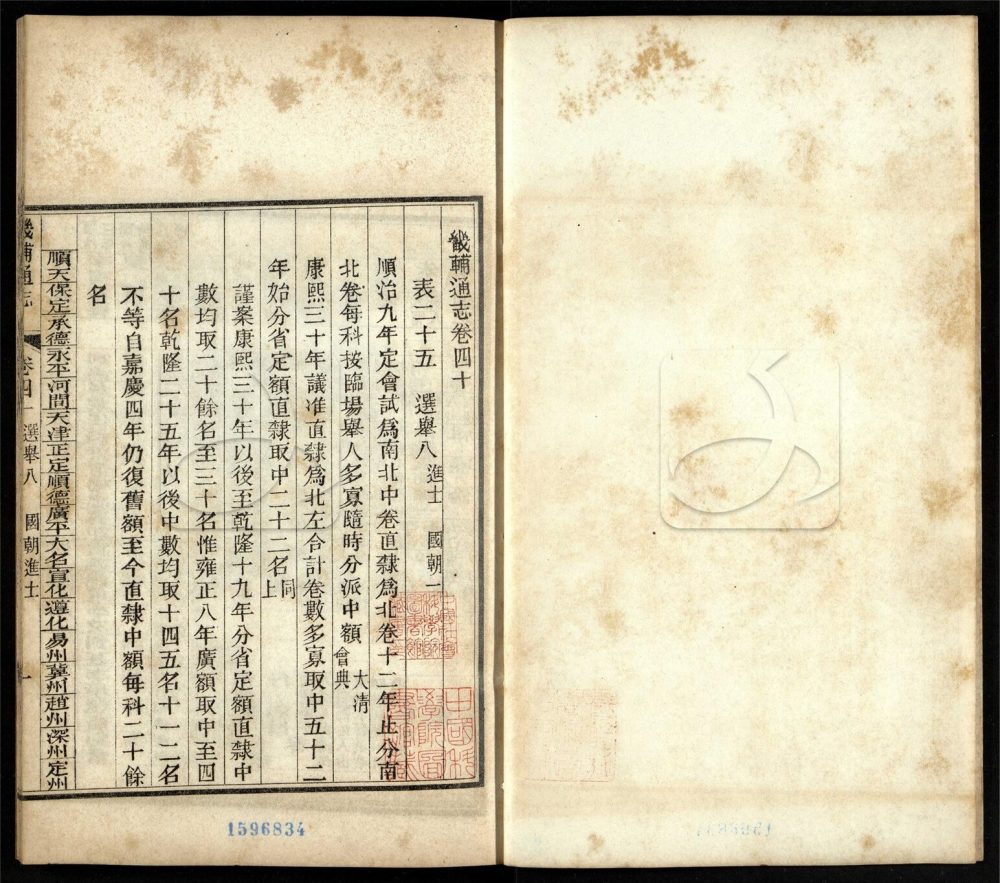 畿輔通志卷四十
表二十五　選舉八 進士　國朝一
順治九年定會試爲南北中卷直隸爲北卷十二年止分南
北卷每科按臨場舉人多寡隨時分派中額 大清會典
康熙三十年議准直隸爲北左合計卷數多寡取中五十二
年始分省定額直隸取中二十二名 同上
謹案康熙三十年以後至乾隆十九年分省定額直隸中
數均取二十餘名至三十名惟雍正八年廣額取中至四
十名乾隆二十五年以後中數均取十四五名十一二名
不等自嘉慶四年仍復舊額至今直隸中額每科二十餘
名
順天保定承德永平河間天津正定順德廣平大名宣化遵化易州冀州趙州深州定州
畿輔通志 卷四 選舉八　國朝進士 一
1596834